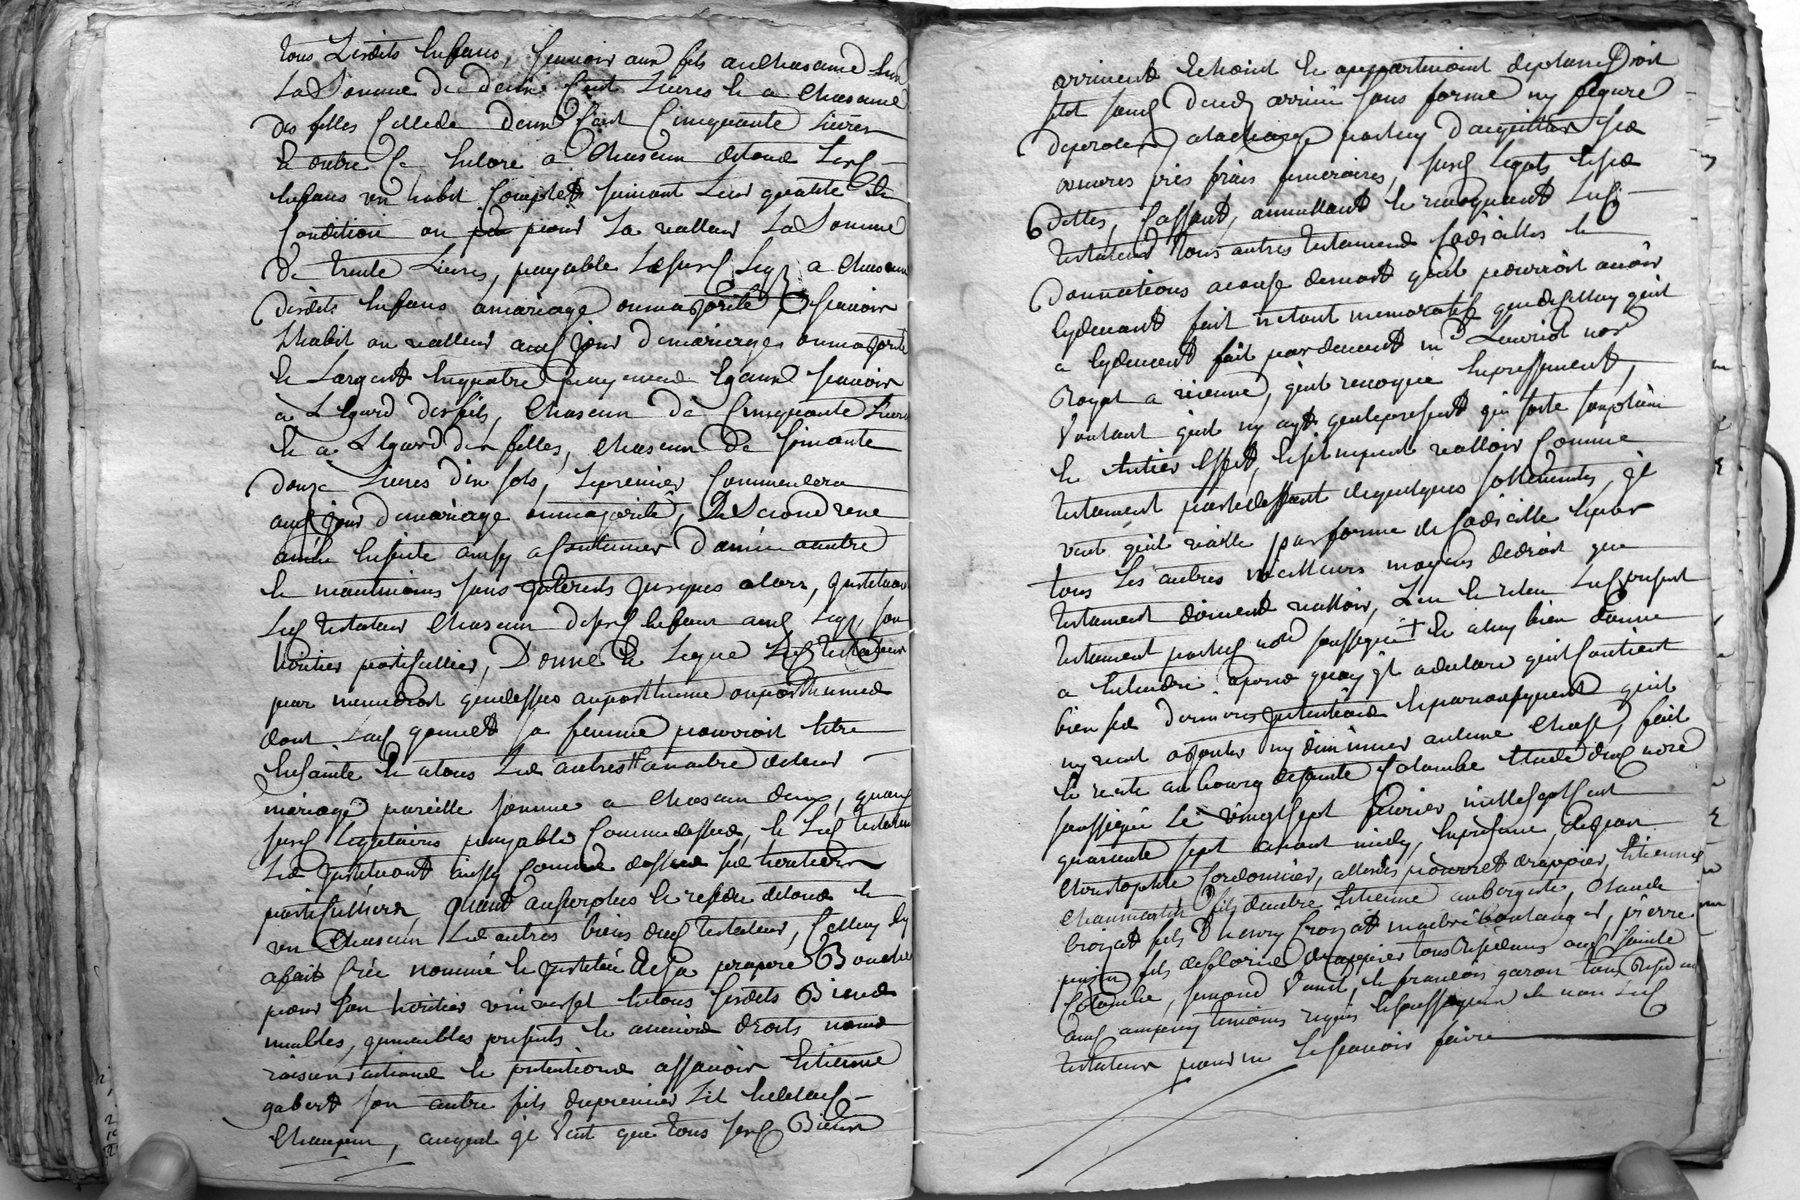 tous Lesdits Enfans, scavoir aux fils a chascun
La Somme de deux Cent Livres & a chascune
des filles Celle de deux Cent Cinquante Livres
& outre ce Encore a chascun de tous Sesd
Enfans un habit Complet suivant Leur qualité &
Condition ou pour La valleur La Somme
de trente Livres, payable Lesusd Leg a chascun
desdits Enfans a mariage ou majorité, scavoir
L'habit ou valleur aud jour de mariage ou majorité
& Largent En quatre payemens Egaux scavoir
à L'Egard des fils, chascun de Cinquante Livres
& a L'Egard des filles, chascun de soixante
douze Livres dix sols, Le premier Commencera
aud jour de mariage ou majorité, Le Second une
année Ensuite ainsy a Continuer d'année a autre
& neantmoins sans interests jusques alors, instituant
Led testateur chascun desusd Enfans aud Leg, son
heritier particullier, Donne & Legue Led testateur
par mesme droit que dessus au posthume ou posthumes
dont Lad gonnet sa femme pourroit Etre
Enceinte & a tous Les autres a naitre de leur
mariage pareille somme a chascun deux, quaux
susd Legataires payable Comme dessus, & Led testateur
Les instituant aussy Comme dessus ses heritiers
particulliers, Quand au surplus & residu de tous &
un chascun Les autres biens dud testateur, Celluy cy
a fait Crée nommé & institué de sa propre Bouche
pour son heritier universel En tous sesdits Biens
meubles, immeubles presents & avenir droits noms
raisons actions & pretentions assavoir Etienne
gabert son autre fils du premier Lit
auquel il Veut que tous sesd Biens
arrivent Echoint & appartiennent de plain Droit
sitot sond deceds arrivé sans forme ny figure
de proces a la charge par luy d'acquitter ses
oeuvres pies frais funeraires, susd Legats & ses
dettes, Cassant, annullant & revoquant Led
testateur tous autres testaments Codicilles &
Donnations a cause de mort quil pourroit avoir
Cy devant fait netant memoratif que de Celluy quil
a Cy devant fait par devant me Louriot nore
Royal a vienne, quil revoque Expressement,
Voulant quil ny ayt que le present qui sorte son plain
& Entier Effet, & sil ne peut valloir Comme
testament par deffaut de quelques sollennités, il
veut quil vaille par forme de Codicille & par
tous Les autres meilleurs moyens de droit que
testament doivent valloir, Leu & releu Led present
testament par led nore soussigné + & a luy bien donné
a Entendre apres quoy il a declaré quil Contient
bien ses dernieres intentions & par consequent quil
ny veut ajouter ny diminuer aucune chose, fait
& recité au bourg de sainte Colombe Etude dud nore
soussigné Le vingt sept fevrier mille sept Cent
quarante sept avant midy, En presence, de jean
christophle Cordonnier, pourret drappier, Etienne
chaumartin fils dautre Etienne aubergiste, Claude
Croizat fils d'henry Croizat maitre boulanger, pierre
fils de drappier tous residans aud Sainte
Colombe, & francois garon
temoins requis & soussignes & non Led
testateur pour ne Le scavoir faire